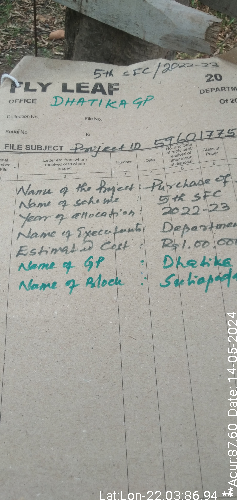 5th SFC/2022-23
FLY LEAF 20
OFFICE DHATIKA GP DEPARTM
Of 20
File No.
FILE SUBJECT Project ID 59601775
Name of the Project : Purchase of
Name of scheme 5th SFC
Year of allocation 2022-23
Name of Executants Departmen
Estimated Cost : Rs1.00.000
Name of GP : Dhatika
Name of Block :
Lat:Lon-22.03:86.94 **Acur:87.60 Date: 14-05-2024